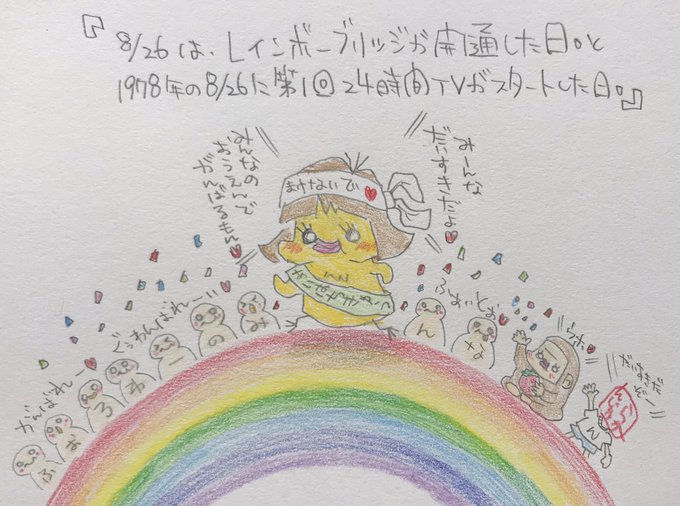 『8/26は、レインボーブリッジが開通した日。と
1978年の8/26に第1回24時間TVがスタートした日。』
みんなの
おうえんで
がんばるもん
みーんな
だいすきだよ
まけないで
がんばれー
ぐぅわんばれーー
ふぉ ろ わ ー の み ん な
ふぁいとぉ
ウホ
だいすきだ
ぞー